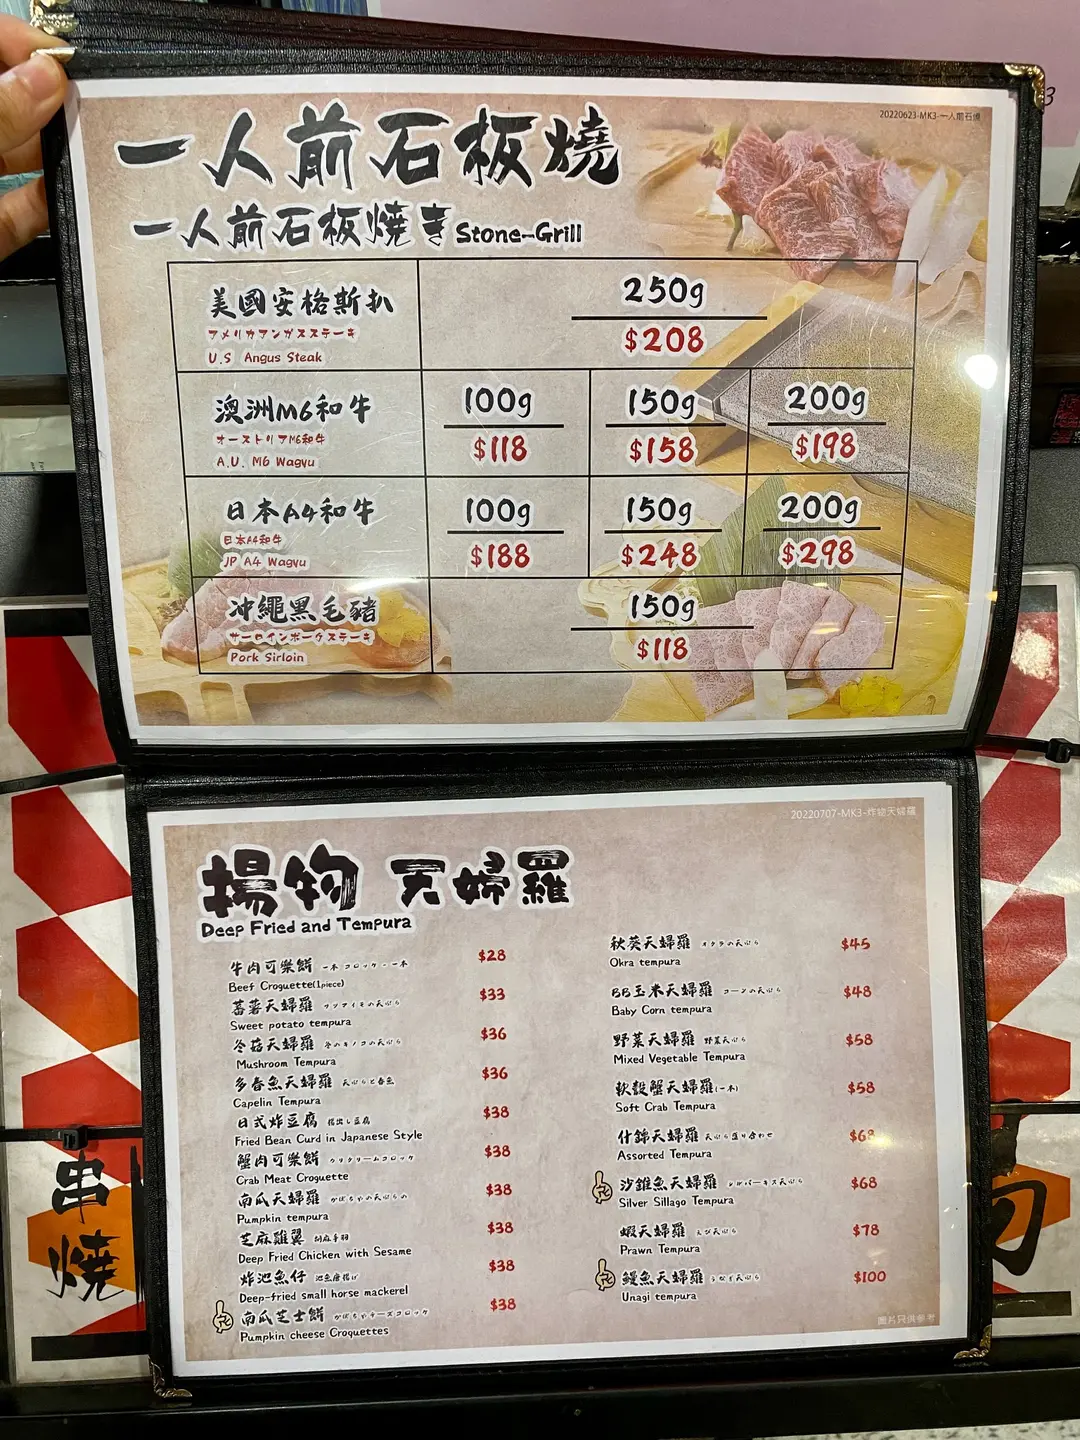 20220623-MK3-一人前石燒
一人前石板燒
一人前石板燒き Stone-Grill
美國安格斯扒
アメリカアンガスステーキ
U.S Angus Steak
250g
$208
澳洲M6和牛
オーストリアM6和牛
A.U. M6 Wagyu
100g 150g 200g
$118 $158 $198
日本A4和牛
日本A4和牛
JP A4 Wagyu
100g 150g 200g
$188 $248 $298
沖繩黑毛豬
サーロインポークステーキ
Pork Sirloin
150g
$118
20220707-MK3-炸物天婦羅
揚物 天婦羅
Deep Fried and Tempura
牛肉可樂餅 $28
Beef Croguette(1piece)
蕃薯天婦羅 $33
Sweet potato tempura
冬菇天婦羅 $36
Mushroom Tempura
多春魚天婦羅 $36
Capelin Tempura
日式炸豆腐 $38
Fried Bean Curd in Japanese Style
蟹肉可樂餅 $38
Crab Meat Croguette
南瓜天婦羅 $38
Pumpkin tempura
芝麻雞翼 胡麻手羽 $38
Deep Fried Chicken with Sesame
炸池魚仔 $38
Deep-fried small horse mackerel
南瓜芝士餅 かぼちゃチーズコロッケ $38
Pumpkin cheese Croquettes
秋葵天婦羅 オクラの天ぷら $45
Okra tempura
BB玉米天婦羅 コーンの天ぷら $48
Baby Corn tempura
野菜天婦羅 野菜天ぷら $58
Mixed Vegetable Tempura
軟殼蟹天婦羅(一本) $58
Soft Crab Tempura
什錦天婦羅 天ぷら盛り合わせ $68
Assorted Tempura
沙錐魚天婦羅 $68
Silver Sillago Tempura
蝦天婦羅 えび天ぷら $78
Prawn Tempura
鰻魚天婦羅 うなぎ天ぷら $100
Unagi tempura
圖片只供參考
串燒